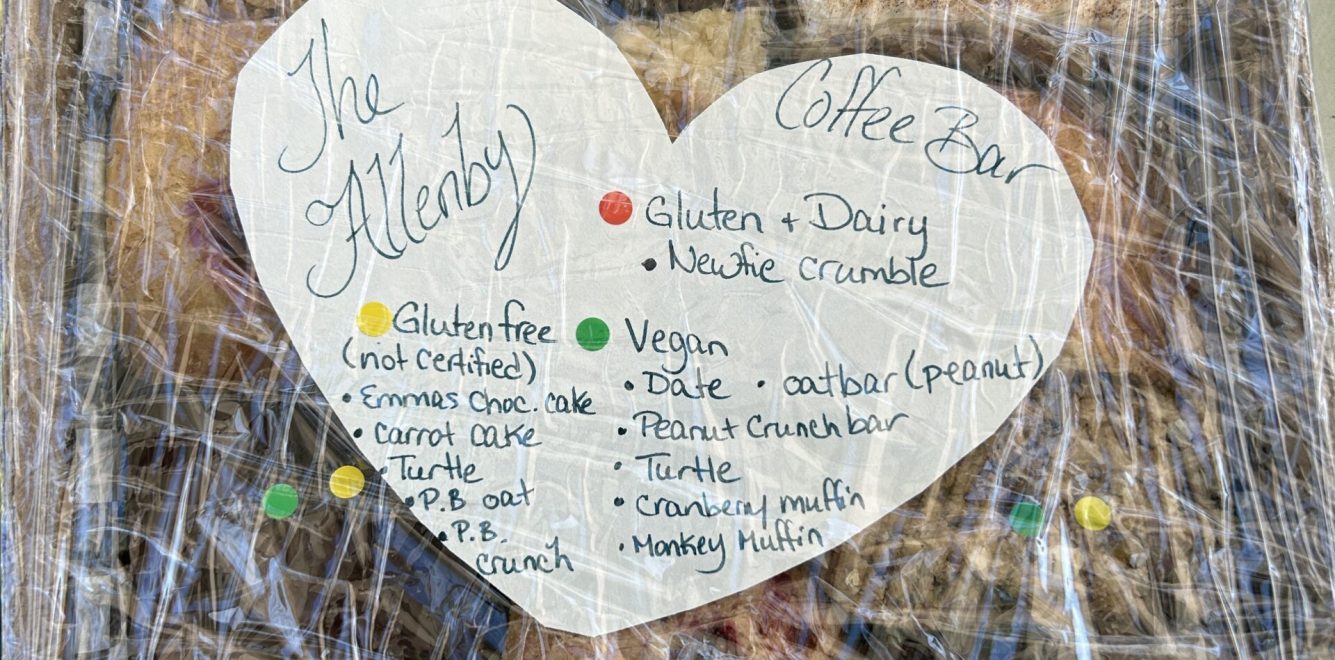 The
Allenby
Coffee Bar
Gluten + Dairy
• Newfie crumble
Gluten free
(not certified)
• Emmas choc. cake
• carrot cake
• Turtle
• P.B oat
• P.B.
crunch
Vegan
• Date • oatbar (peanut)
• Peanut Crunch bar
• Turtle
• Cranberry muffin
• Monkey Muffin